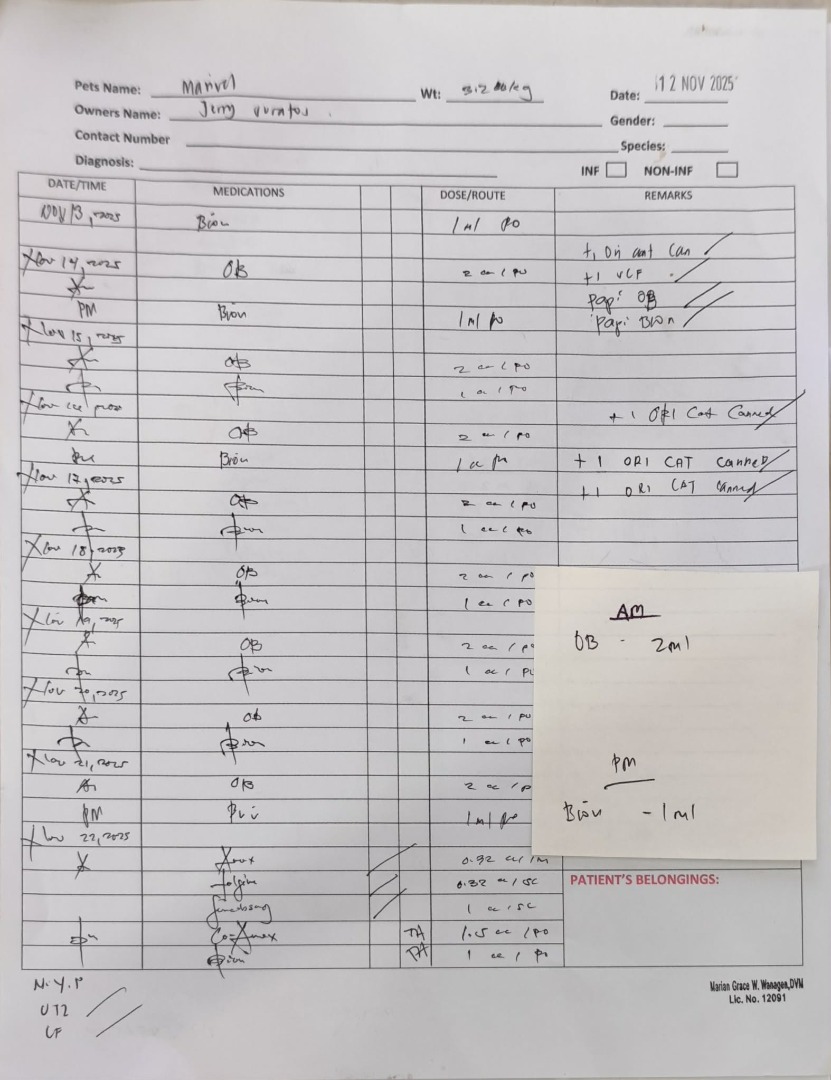 12 NOV 2025
Pets Name: Marvel Wt: 3.2 kg Date:
Owners Name: Jerry Gender:
Contact Number Species:
Diagnosis: INF NON-INF
DATE/TIME MEDICATIONS DOSE/ROUTE REMARKS
NOV 13, 2025 Bion 1ml PO
+1 Ori cat Can
Nov 14, 2025 OB 2 cc / PO +1 VCF
Papi OB
PM Bion 1ml PO Papi Bion
Nov 15, 2025
OB 2 cc / PO
Bion 1 cc / PO
+ 1 ORI Cat Canned
OB 2 cc / PO
Bion 1cc + 1 ORI CAT Canned
Nov 17, 2025 + 1 ORI CAT Canned
OB 2 cc / PO
Bion 1 cc / PO
Nov 18, 2025
OB 2 cc / PO
Bion 1 cc / PO
Nov 19, 2025
OB 2 cc /
Bion 1 cc /
Nov 20, 2025
OB 2 cc / PO
Bion 1 cc / PO
Nov 21, 2025
OB 2 cc /
PM 1ml PO
Nov 22, 2025
0.32 cc / IM
0.32 cc / SC
1 cc / SC
Co-Amox TA 1.5 cc / PO
Bion TA 1 cc / PO
AM
OB - 2ml
PM
Bion - 1ml
PATIENT'S BELONGINGS:
N.Y.P
UTZ
CF
Marian Grace W. Wanagen,DVM
Lic. No. 12091